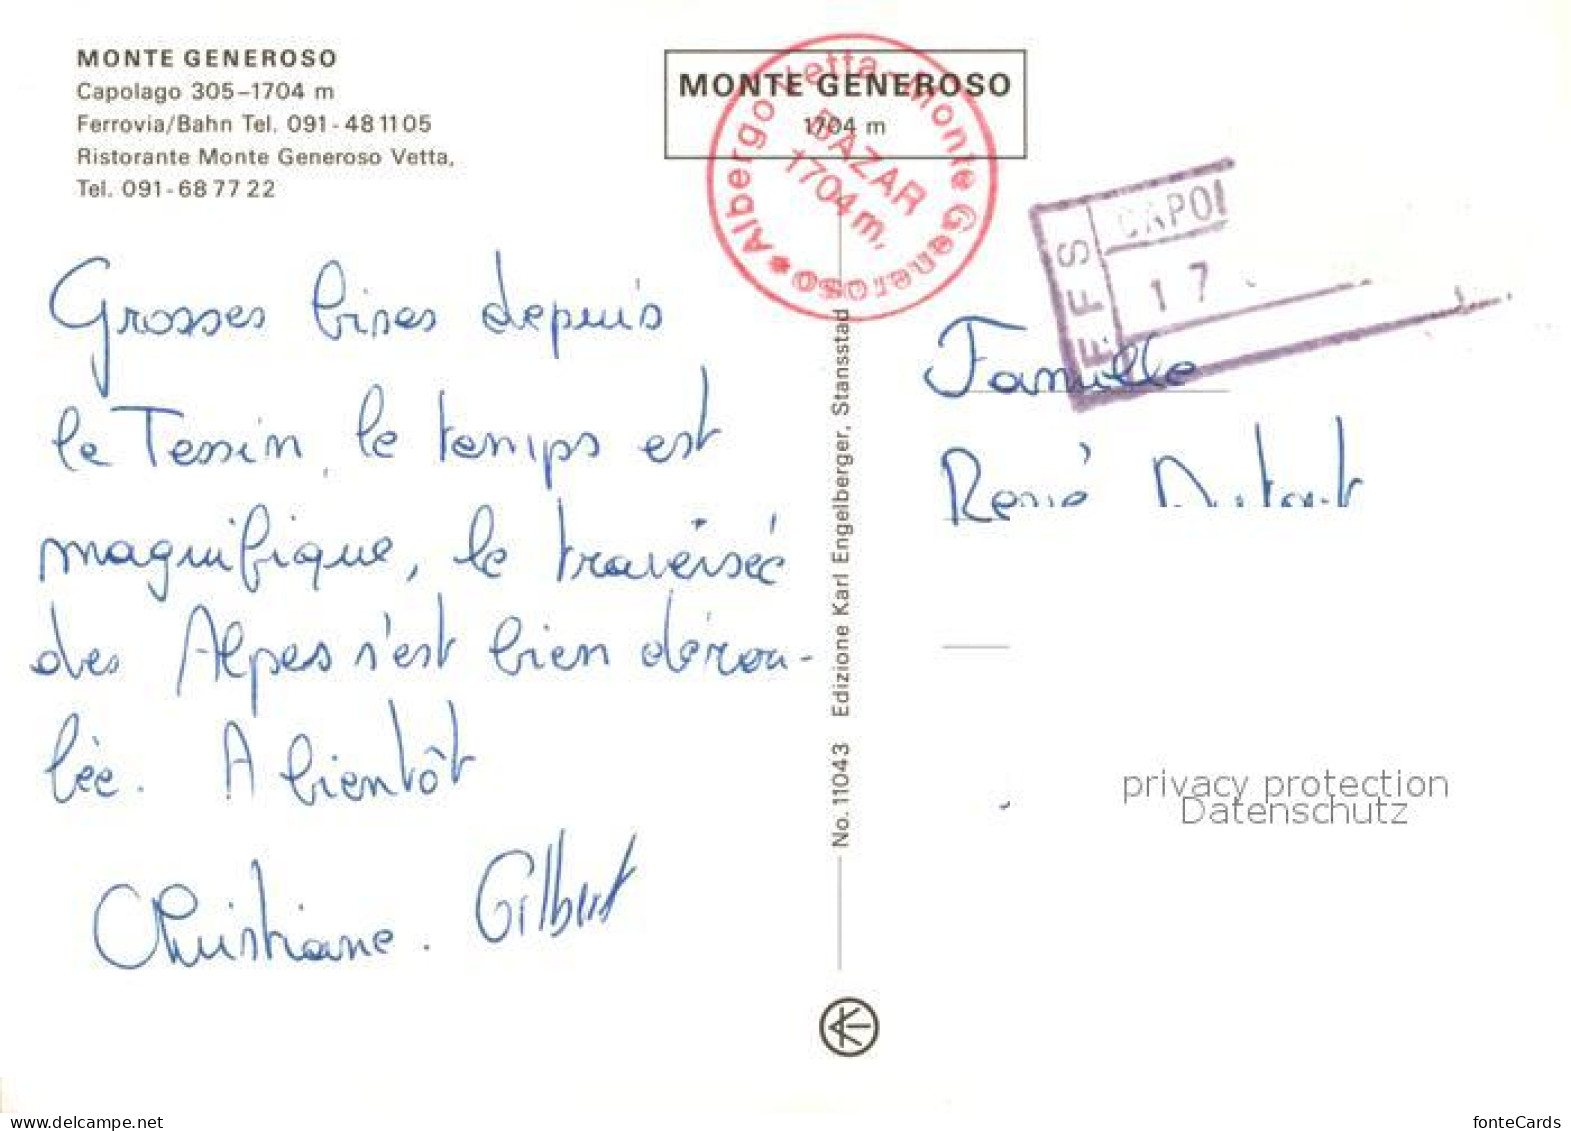 MONTE GENEROSO
Capolago 305–1704 m
Ferrovia/Bahn Tel. 091-48 11 05
Ristorante Monte Generoso Vetta,
Tel. 091-68 77 22
MONTE GENEROSO
1704 m
Albergo Vetta-Monte Generoso
BAZAR
1704 m,
FFS
CAPOL
17
Grosses bises depuis
le Tessin, le temps est
magnifique, le traversée
des Alpes s'est bien dérou-
lée. A bientôt
Christiane. Gilbert
No. 11043 Edizione Karl Engelberger, Stansstad
Famille
René
privacy protection
Datenschutz
my-postcard.net
fonteCards